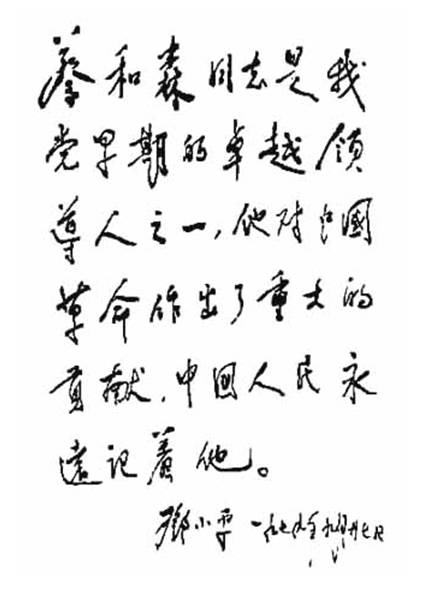 蔡和森同志是我
党早期的卓越领
导人之一，他对中國
革命作出了重大的
贡献，中国人民永
远记着他。
鄧小平 一九七九年